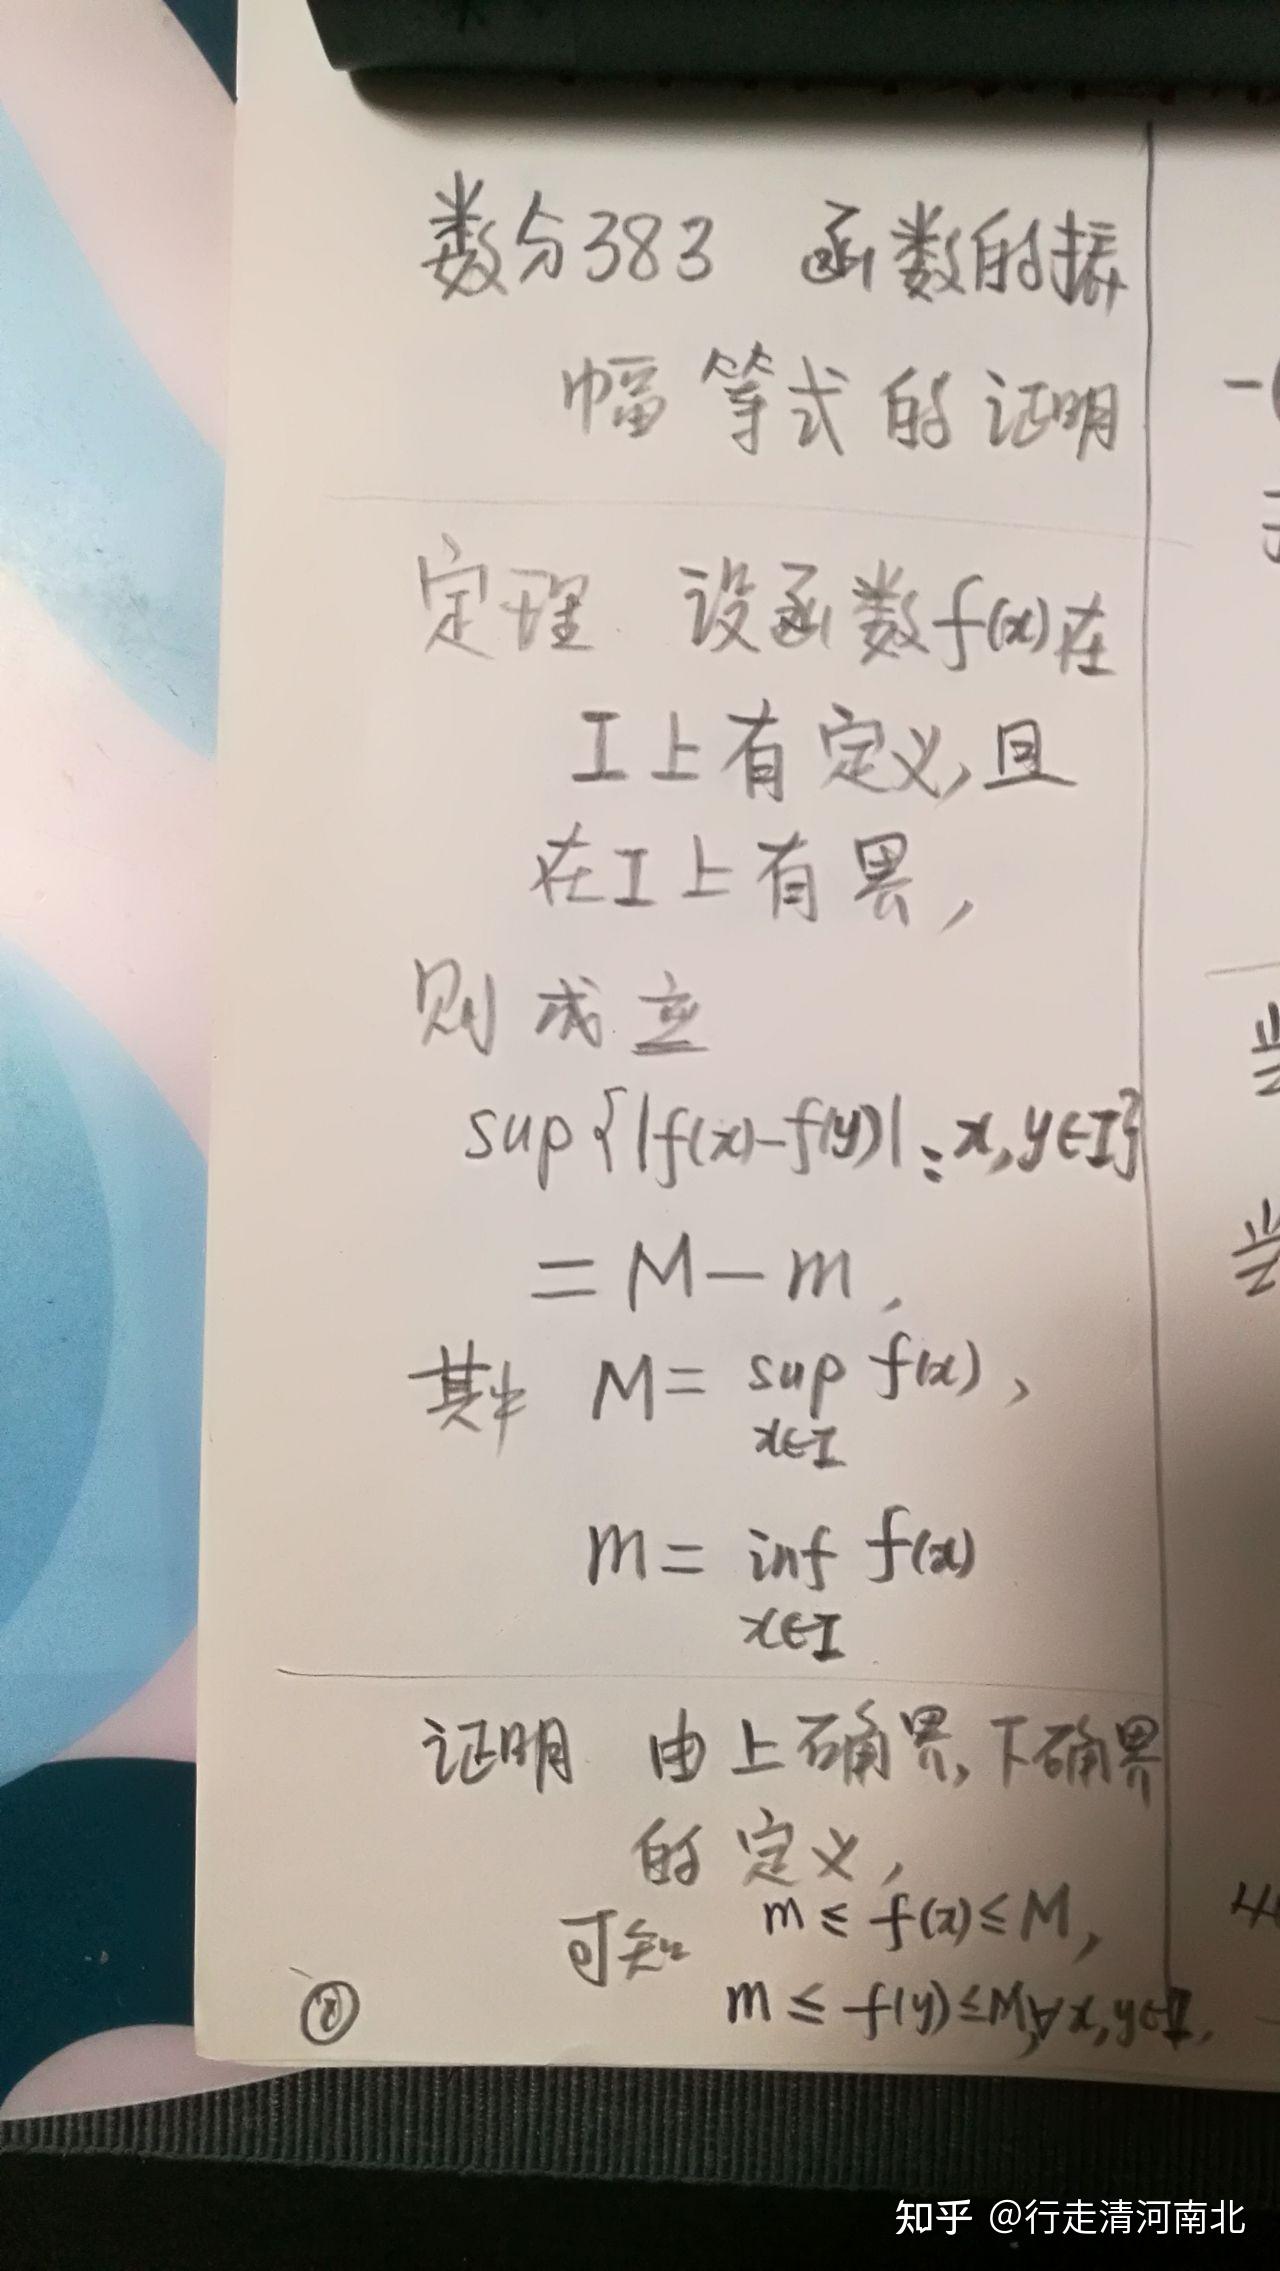 数分383 函数的振
幅等式的证明
定理 设函数f(x)在
I上有定义,且
在I上有界,
则成立
sup{|f(x)-f(y)|:x,y∈I}
=M-m,
其中 M= sup f(x),
x∈I
m= inf f(x)
x∈I
证明 由上确界,下确界
的定义,
可知 m≤f(x)≤M,
m≤f(y)≤M,∀x,y∈I,
知乎 @行走清河南北